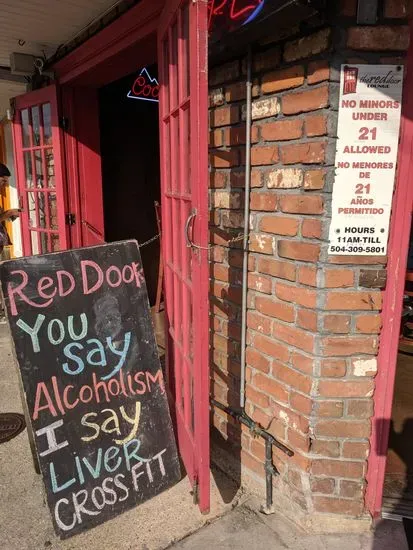 RED DOOR
YOU
SAY
ALCOHOLISM
I SAY
LIVER
CROSS FIT
the red door
LOUNGE
NO MINORS
UNDER
21
ALLOWED
NO MENORES
DE
21
AÑOS
PERMITIDO
HOURS
11AM-TILL
504-309-5801